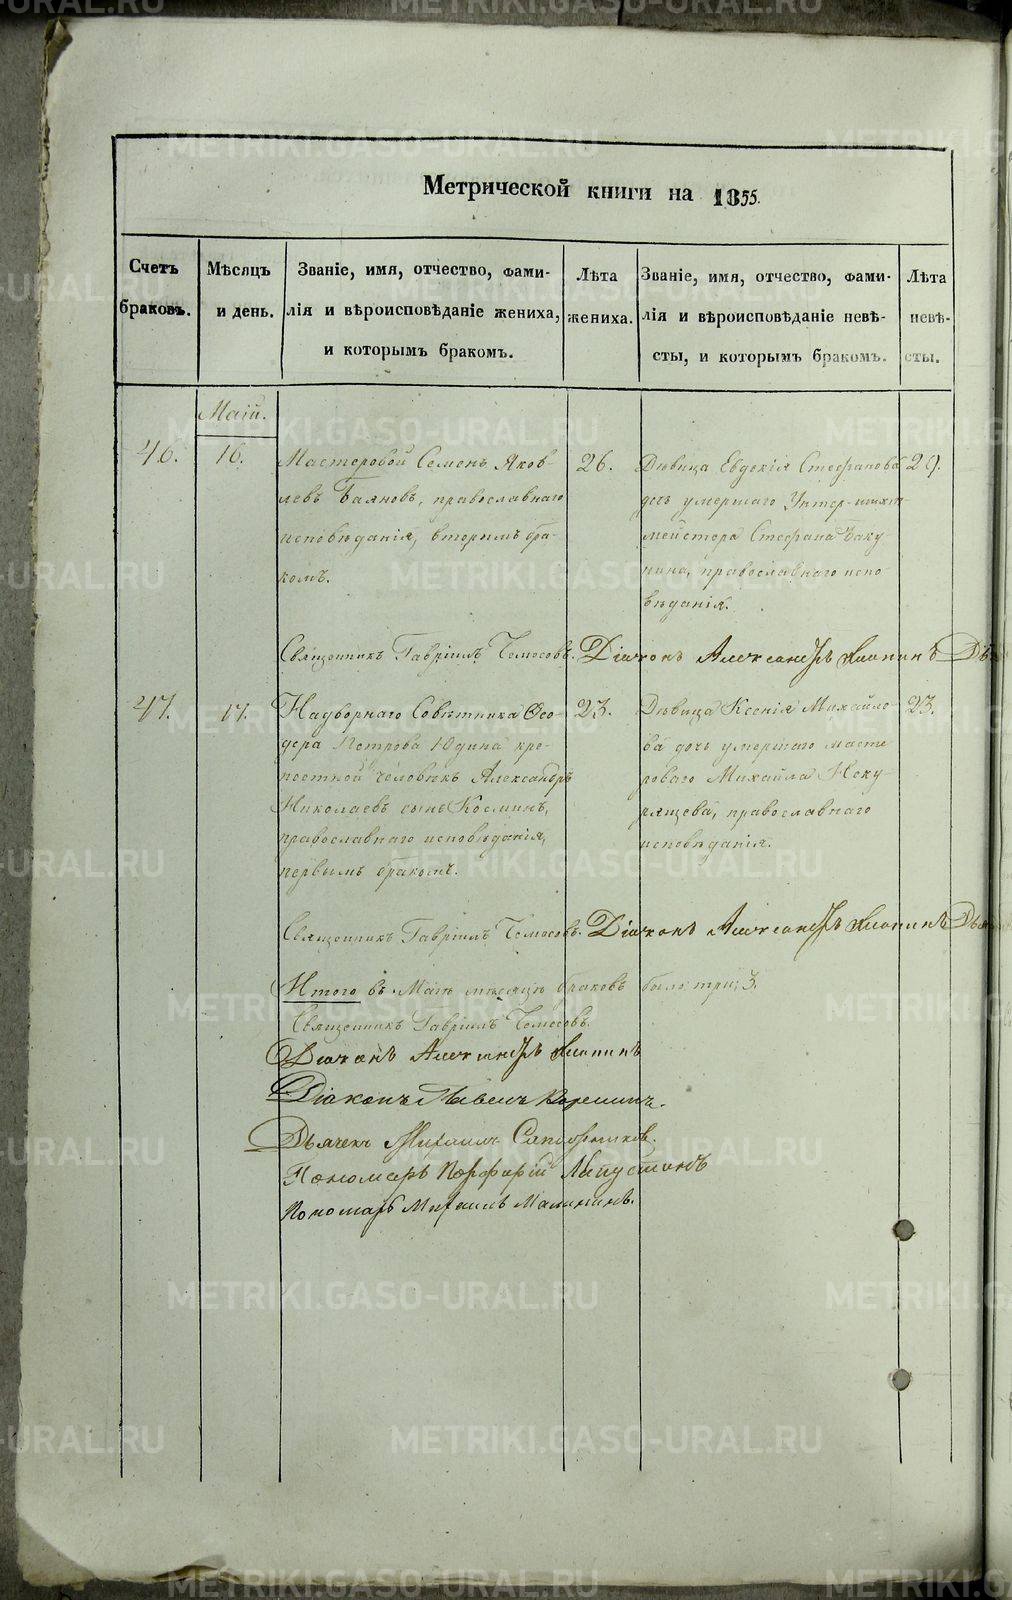 Метрической книги на 1855.
Счетъ браковъ.
Мѣсяцъ и день.
Званіе, имя, отчество, фами-
лія и вѣроисповѣданіе жениха,
и которымъ бракомъ.
Лѣта
жениха.
Званіе, имя, отчество, фами-
лія и вѣроисповѣданіе невѣ-
сты, и которымъ бракомъ.
Лѣта
невѣ-
сты.
Маій.
46.
16.
Мастеровой Семенъ Яков-
левъ Баяновъ, православнаго
исповѣданія, вторымъ бра-
комъ.
26.
Дѣвица Евдокія Стефанова
дочь умершаго Унтер-шихт
мейстера Стефана Баку-
нина, православнаго испо-
вѣданія.
Священникъ Гавріилъ Діаконъ Александръ
47.
17.
Надворнаго Совѣтника Ѳео-
дора Петрова Юдина кре-
постной человѣкъ Александръ
Николаевъ сынъ Косминъ,
православнаго исповѣданія,
первымъ бракомъ.
23.
Дѣвица Ксенія Михайло-
ва дочь умершаго масте-
роваго Михайла
православнаго
исповѣданія.
23.
Священникъ Гавріилъ Діаконъ Александръ
Итого въ Маѣ мѣсяцѣ браковъ было: три; 3.
Священникъ Гавріилъ
Діаконъ Александръ
Діаконъ Павелъ
Дьячекъ Михаилъ Сапожников.
Пономарь Порфирій Лапустинъ
Пономарь Михаилъ Малининъ.
METRIKI.GASO-URAL.RU